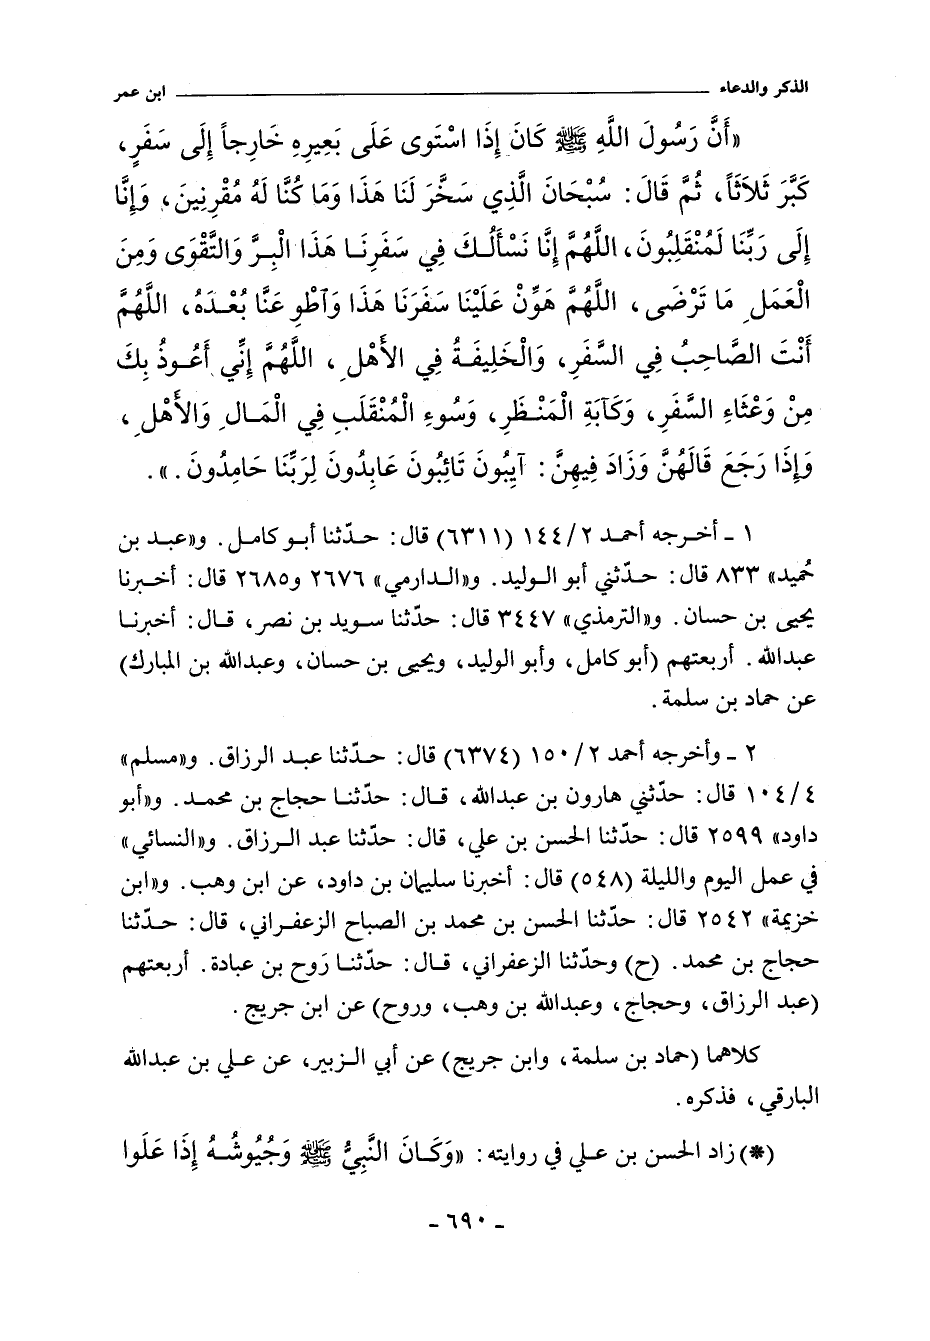 الذكر والدعاء ــــــــــــــــــــ ابن عمر
«أَنَّ رَسُولَ اللَّهِ ﷺ كَانَ إِذَا اسْتَوى عَلَى بَعِيرِهِ خَارِجاً إِلَى سَفَرٍ،
كَبَّرَ ثَلاَثَاً، ثُمَّ قَالَ: سُبْحَانَ الَّذِي سَخَّرَ لَنَا هَذَا وَمَا كُنَّا لَهُ مُقْرِنِينَ، وَإِنَّا
إِلَى رَبِّنَا لَمُنْقَلِبُونَ، اللَّهُمَّ إِنَّا نَسْأَلُكَ فِي سَفَرِنَا هَذَا الْبِرَّ وَالتَّقْوَى وَمِنَ
الْعَمَلِ مَا تَرْضَى، اللَّهُمَّ هَوِّنْ عَلَيْنَا سَفَرَنَا هَذَا وَآطْوِ عَنَّا بُعْدَهُ، اللَّهُمَّ
أَنْتَ الصَّاحِبُ فِي السَّفَرِ، وَالْخَلِيفَةُ فِي الأَهْلِ، اللَّهُمَّ إِنِّي أَعُوذُ بِكَ
مِنْ وَعْثَاءِ السَّفَرِ، وَكَآبَةِ الْمَنْظَرِ، وَسُوءِ الْمُنْقَلَبِ فِي الْمَالِ وَالأَهْلِ،
وَإِذَا رَجَعَ قَالَهُنَّ وَزَادَ فِيهِنَّ: آيِبُونَ تَائِبُونَ عَابِدُونَ لِرَبِّنَا حَامِدُونَ.».
١ ـ أخرجه أحمد ٢/ ١٤٤ (٦٣١١) قال: حدّثنا أبو كامل. و«عبد بن
حُميد» ٨٣٣ قال: حدّثني أبو الوليد. و«الدارمي» ٢٦٧٦ و٢٦٨٥ قال: أخبرنا
يحيى بن حسان. و«الترمذي» ٣٤٤٧ قال: حدّثنا سويد بن نصر، قال: أخبرنا
عبدالله. أربعتهم (أبو كامل، وأبو الوليد، ويحيى بن حسان، وعبدالله بن المبارك)
عن حماد بن سلمة.
٢ ـ وأخرجه أحمد ٢/ ١٥٠ (٦٣٧٤) قال: حدّثنا عبد الرزاق. و«مسلم»
٤/ ١٠٤ قال: حدّثني هارون بن عبدالله، قال: حدّثنا حجاج بن محمد. و«أبو
داود» ٢٥٩٩ قال: حدّثنا الحسن بن علي، قال: حدّثنا عبد الرزاق. و«النسائي»
في عمل اليوم والليلة (٥٤٨) قال: أخبرنا سليمان بن داود، عن ابن وهب. و«ابن
خزيمة» ٢٥٤٢ قال: حدّثنا الحسن بن محمد بن الصباح الزعفراني، قال: حدّثنا
حجاج بن محمد. (ح) وحدّثنا الزعفراني، قال: حدّثنا رَوح بن عبادة. أربعتهم
(عبد الرزاق، وحجاج، وعبدالله بن وهب، وروح) عن ابن جريج.
كلاهما (حماد بن سلمة، وابن جريج) عن أبي الزبير، عن علي بن عبدالله
البارقي، فذكره.
(*) زاد الحسن بن علي في روايته: «وَكَانَ النَّبِيُّ ﷺ وَجُيُوشُهُ إِذَا عَلَوا
ـ ٦٩٠ ـ